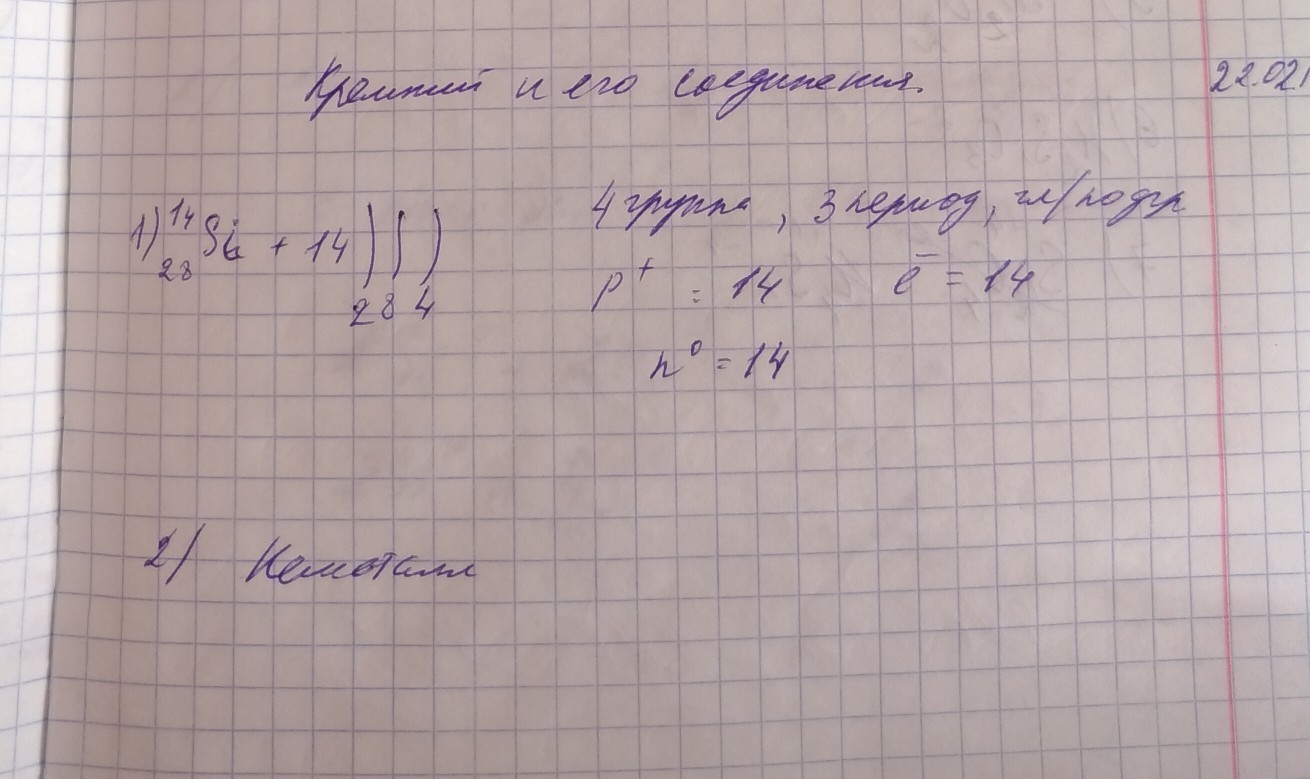 Кремний и его соединения.
22.02
1) 14 28 Si + 14 ) ) )
2 8 4
4 группа, 3 период, гл/подгр
p⁺ = 14 e⁻ = 14
n⁰ = 14
2) Неметалл